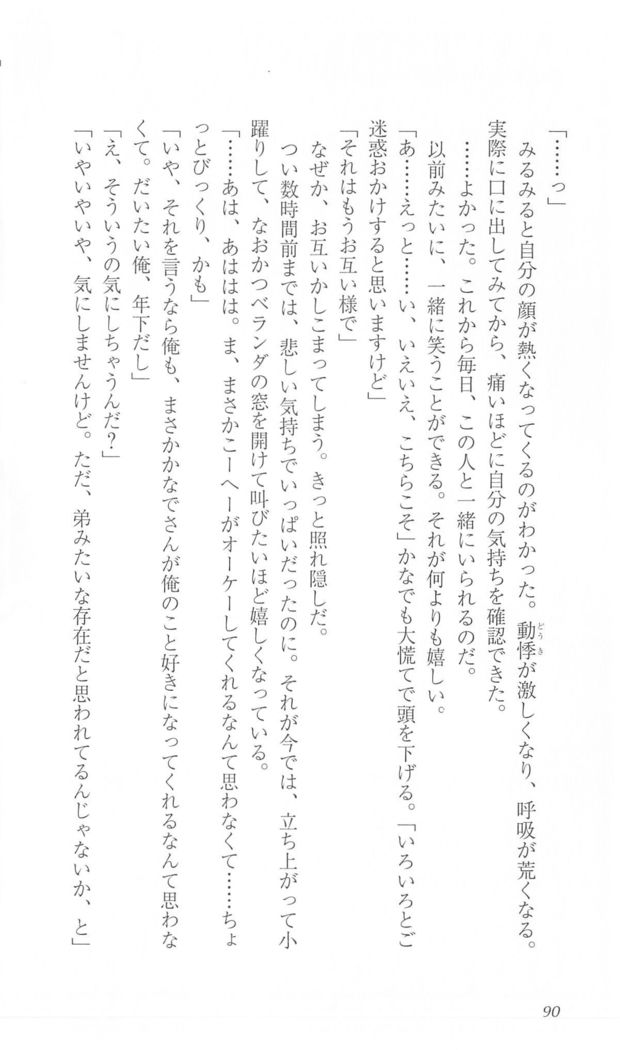 「……っ」
　みるみると自分の顔が熱くなってくるのがわかった。動悸が激しくなり、呼吸が荒くなる。
実際に口に出してみてから、痛いほどに自分の気持ちを確認できた。
　……よかった。これから毎日、この人と一緒にいられるのだ。
　以前みたいに、一緒に笑うことができる。それが何よりも嬉しい。
「あ……えっと……い、いえいえ、こちらこそ」かなでも大慌てで頭を下げる。「いろいろとご
迷惑おかけすると思いますけど」
「それはもうお互い様で」
　なぜか、お互いかしこまってしまう。きっと照れ隠しだ。
　つい数時間前までは、悲しい気持ちでいっぱいだったのに。それが今では、立ち上がって小
躍りして、なおかつベランダの窓を開けて叫びたいほど嬉しくなっている。
「……あは、あははは。ま、まさかこーへーがオーケーしてくれるなんて思わなくて……ちょ
っとびっくり、かも」
「いや、それを言うなら俺も、まさかかなでさんが俺のこと好きになってくれるなんて思わな
くて。だいたい俺、年下だし」
「え、そういうの気にしちゃうんだ？」
「いやいやいや、気にしませんけど。ただ、弟みたいな存在だと思われてるんじゃないか、と」
どうき
90